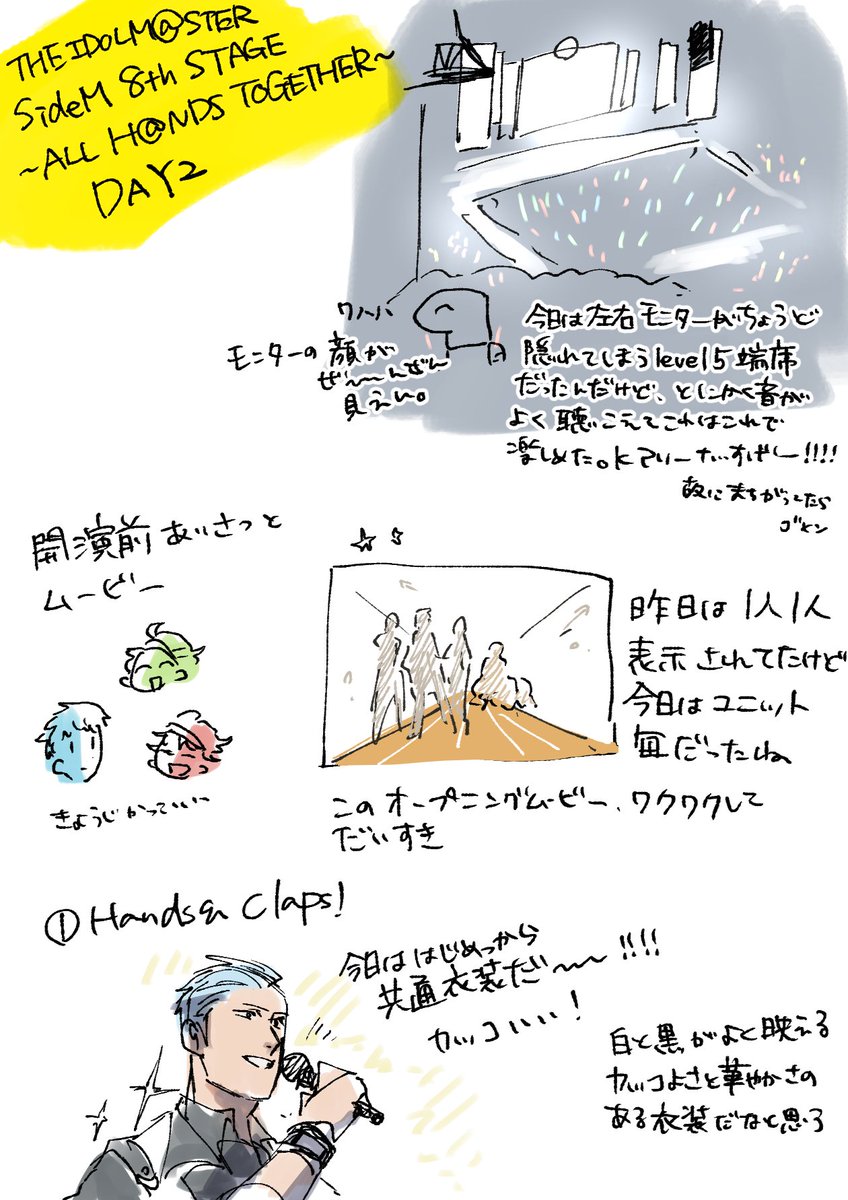 THE IDOLM@STER
SideM 8th STAGE
~ALL H@NDS TOGETHER~
DAY2
ワハハ
モニターの顔が
ぜ〜〜んぜん
見えない。
今日は左右モニターがちょうど
隠れてしまうlevel5端席
だったんだけど、とにかく音が
よく聴こえてこれはこれで
楽しめた。Kアリーナ
!!!!
ゴメン
開演前あいさつと
ムービー
きょうじかっていい〜
昨日は1人1人
表示されてたけど
今日はユニット
毎だったね
このオープニングムービー、ワクワクして
だいすき
① Hands & Claps!
今日ははじめっから
共通衣装だ〜〜!!!!
カッコいい!
白と黒がよく映える
カッコよさと華やかさの
ある衣装だなと思う